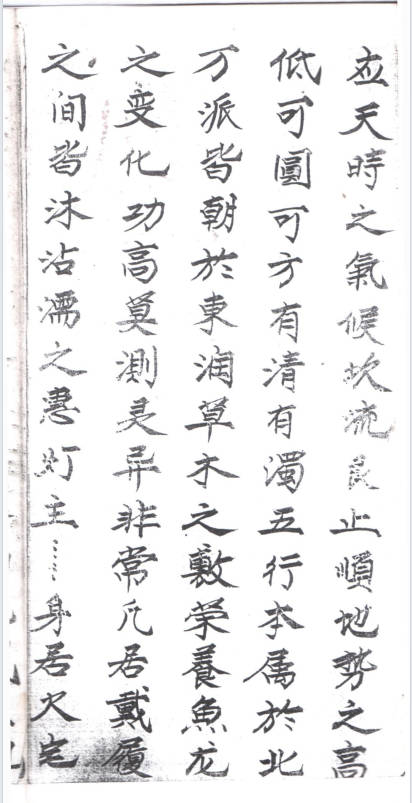 应天時之氣候坎流艮止順地勢之高
低可圓可方有清有濁五行本属於北
万派皆朝於東润草木之敷荣養魚龙
之变化功高莫測灵异非常凡居戴履
之间皆沐沾濡之惠灯主……身居火宅